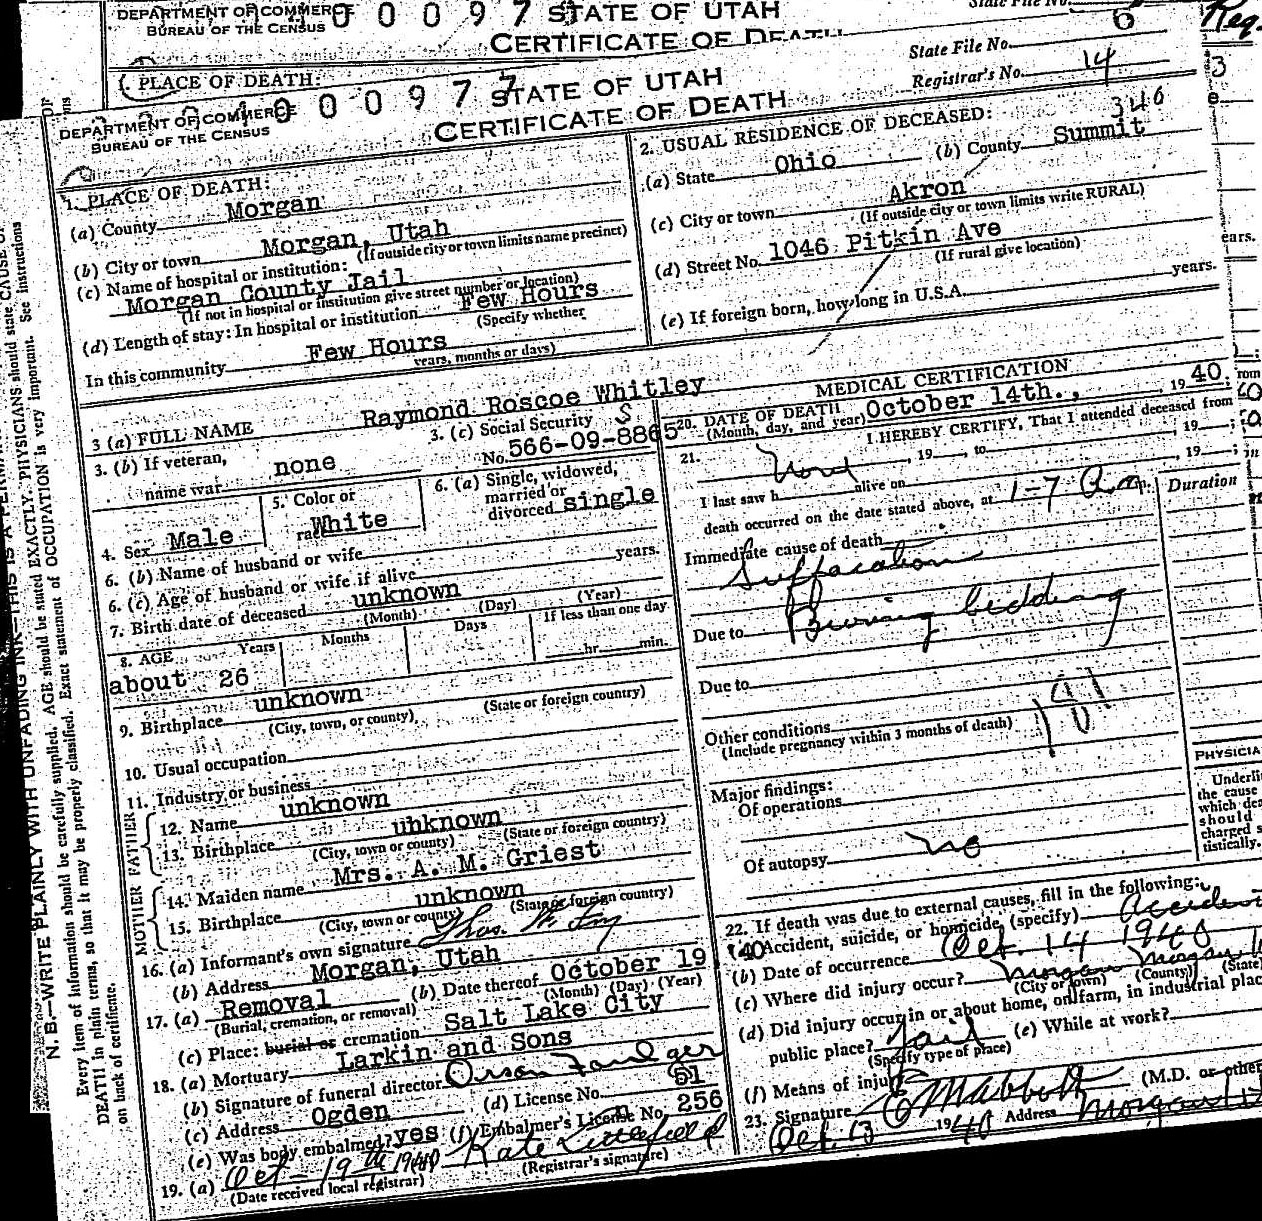 DEPARTMENT OF COMMERCE
BUREAU OF THE CENSUS
0 0 0 9 7
STATE OF UTAH
CERTIFICATE OF DEATH
State File No.
6
Reg.
1. PLACE OF DEATH:
State File No.
Registrar's No. 14
3
DEPARTMENT OF COMMERCE
BUREAU OF THE CENSUS
4 0 0 0 9 7 7
STATE OF UTAH
CERTIFICATE OF DEATH
346
1. PLACE OF DEATH:
(a) County Morgan
(b) City or town Morgan, Utah
(If outside city or town limits name precinct)
(c) Name of hospital or institution:
Morgan County Jail
(If not in hospital or institution give street number or location)
(d) Length of stay: In hospital or institution Few Hours
(Specify whether
In this community Few Hours
years, months or days)
2. USUAL RESIDENCE OF DECEASED:
(a) State Ohio (b) County Summit
(c) City or town Akron
(If outside city or town limits write RURAL)
(d) Street No. 1046 Pitkin Ave
(If rural give location)
(e) If foreign born, how long in U.S.A. years.
ears.
3 (a) FULL NAME Raymond Roscoe Whitley
3. (b) If veteran,
name war none
3. (c) Social Security S
No. 566-09-8865
4. Sex Male
5. Color or
race White
6. (a) Single, widowed,
married or
divorced single
6. (b) Name of husband or wife
6. (c) Age of husband or wife if alive years.
7. Birth date of deceased unknown
(Month) (Day) (Year)
8. AGE Years Months Days If less than one day
about 26 hr. min.
9. Birthplace unknown
(City, town, or county) (State or foreign country)
10. Usual occupation
11. Industry or business
FATHER
12. Name unknown
13. Birthplace unknown
(City, town or county) (State or foreign country)
MOTHER
14. Maiden name Mrs. A. M. Griest
15. Birthplace unknown
(City, town or county) (State or foreign country)
16. (a) Informant's own signature Thos.
(b) Address Morgan, Utah
17. (a) Removal (b) Date thereof October 19, '40
(Burial, cremation, or removal) (Month) (Day) (Year)
(c) Place: burial or cremation Salt Lake City
18. (a) Mortuary Larkin and Sons
(b) Signature of funeral director Orson
(c) Address Ogden (d) License No. 51
(e) Was body embalmed? yes (f) Embalmer's License No. 256
19. (a) Oct - 19th 1940 Kate Littlefield
(Date received local registrar) (Registrar's signature)
MEDICAL CERTIFICATION
20. DATE OF DEATH
(Month, day, and year) October 14th., 19 40
21. I HEREBY CERTIFY, That I attended deceased from
, 19 , to , 19 ;
I last saw h alive on , 19 ;
death occurred on the date stated above, at 1-7 A m.
Duration
Immediate cause of death
Suffacation
Due to Burning bedding
Due to
Other conditions
(Include pregnancy within 3 months of death)
181
Major findings:
Of operations
Of autopsy no
PHYSICIA
Underli
the cause
which dea
should
charged s
tistically.
22. If death was due to external causes, fill in the following:
(a) Accident, suicide, or homicide (specify) Accident
(b) Date of occurrence Oct. 14 1940
(c) Where did injury occur? Morgan Morgan
(City or town) (County) (State)
(d) Did injury occur in or about home, on farm, in industrial plac
public place? Jail (e) While at work?
(Specify type of place)
(f) Means of injury
23. Signature (M.D. or other
Oct. 13 1940 Address Morgan
N. B.—WRITE PLAINLY WITH UNFADING INK—THIS IS A
Every item of information should be carefully supplied. AGE should be stated EXACTLY. PHYSICIANS should state CAUSE OF
DEATH in plain terms, so that it may be properly classified. Exact statement of OCCUPATION is very important. See instructions
on back of certificate.